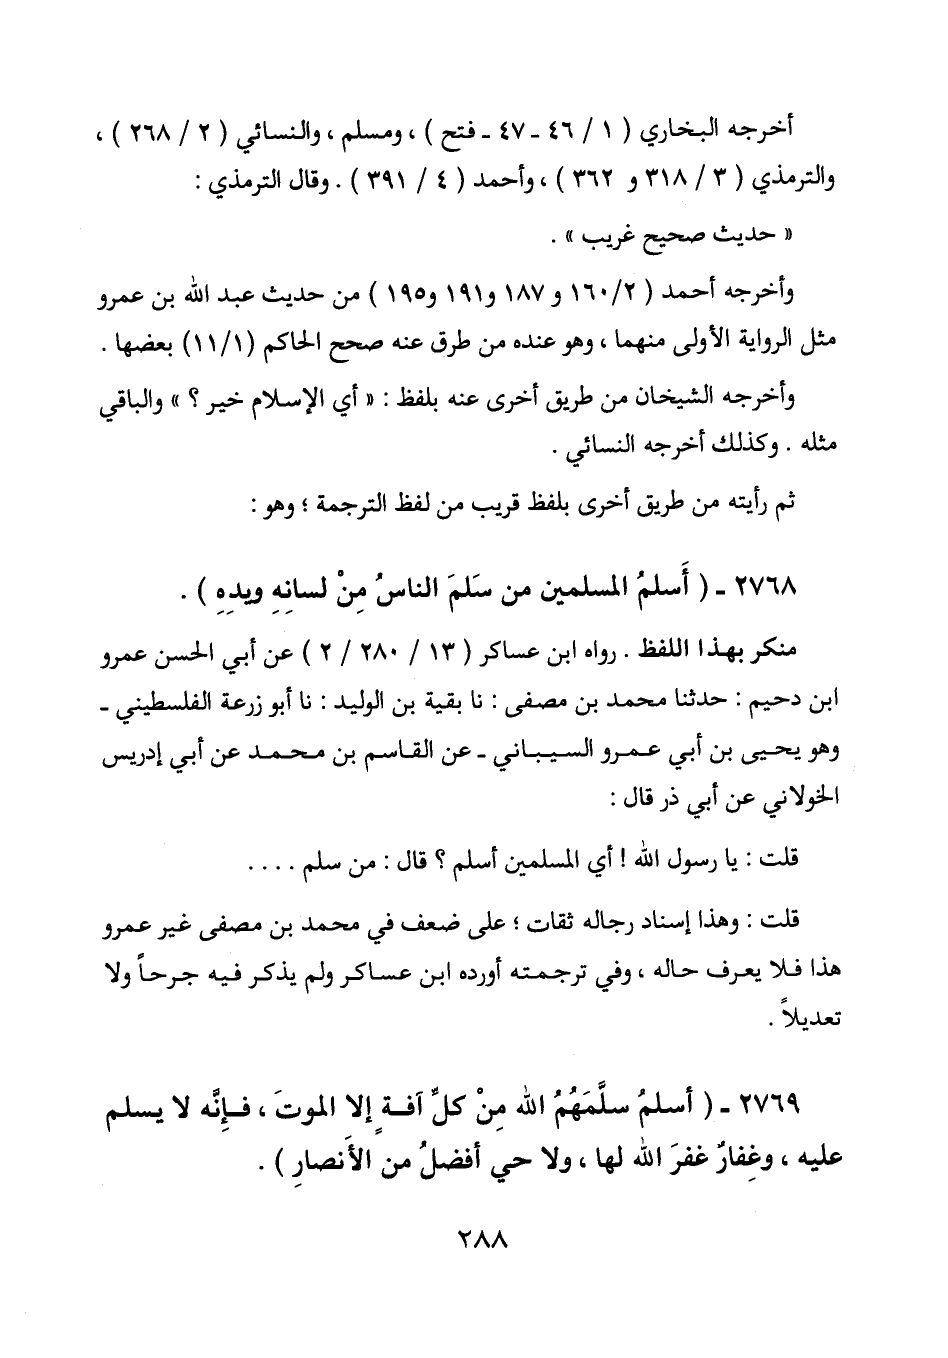 أخرجه البخاري ( ١ / ٤٦ ـ ٤٧ ـ فتح ) ، ومسلم ، والنسائي ( ٢ / ٢٦٨ ) ،
والترمذي ( ٣ / ٣١٨ و ٣٦٢ ) ، وأحمد ( ٤ / ٣٩١ ) . وقال الترمذي :
« حديث صحيح غريب » .
وأخرجه أحمد ( ١٦٠/٢ و ١٨٧ و١٩١ و١٩٥ ) من حديث عبد الله بن عمرو
مثل الرواية الأولى منهما ، وهو عنده من طرق عنه صحح الحاكم (١١/١) بعضها .
وأخرجه الشيخان من طريق أخرى عنه بلفظ : « أي الإسلام خير ؟ » والباقي
مثله . وكذلك أخرجه النسائي .
ثم رأيته من طريق أخرى بلفظ قريب من لفظ الترجمة ؛ وهو :
٢٧٦٨ ـ ( أَسلمُ المسلمين من سَلمَ الناسُ مِنْ لسانِهِ ويدِهِ ) .
منكر بهذا اللفظ . رواه ابن عساكر ( ١٣ / ٢٨٠ / ٢ ) عن أبي الحسن عمرو
ابن دحيم : حدثنا محمد بن مصفى : نا بقية بن الوليد : نا أبو زرعة الفلسطيني ـ
وهو يحيى بن أبي عمرو السيباني ـ عن القاسم بن محمد عن أبي إدريس
الخولاني عن أبي ذر قال :
قلت : يا رسول الله ! أي المسلمين أسلم ؟ قال : من سلم . . . .
قلت : وهذا إسناد رجاله ثقات ؛ على ضعف في محمد بن مصفى غير عمرو
هذا فلا يعرف حاله ، وفي ترجمته أورده ابن عساكر ولم يذكر فيه جرحاً ولا
تعديلاً .
٢٧٦٩ ـ ( أسلمُ سلَّمَهُمُ الله مِنْ كلِّ آفةٍ إلا الموتَ ، فإِنَّه لا يسلم
عليه ، وغِفارٌ غفرَ الله لها ، ولا حي أفضلُ من الأَنصارِ ) .
٢٨٨